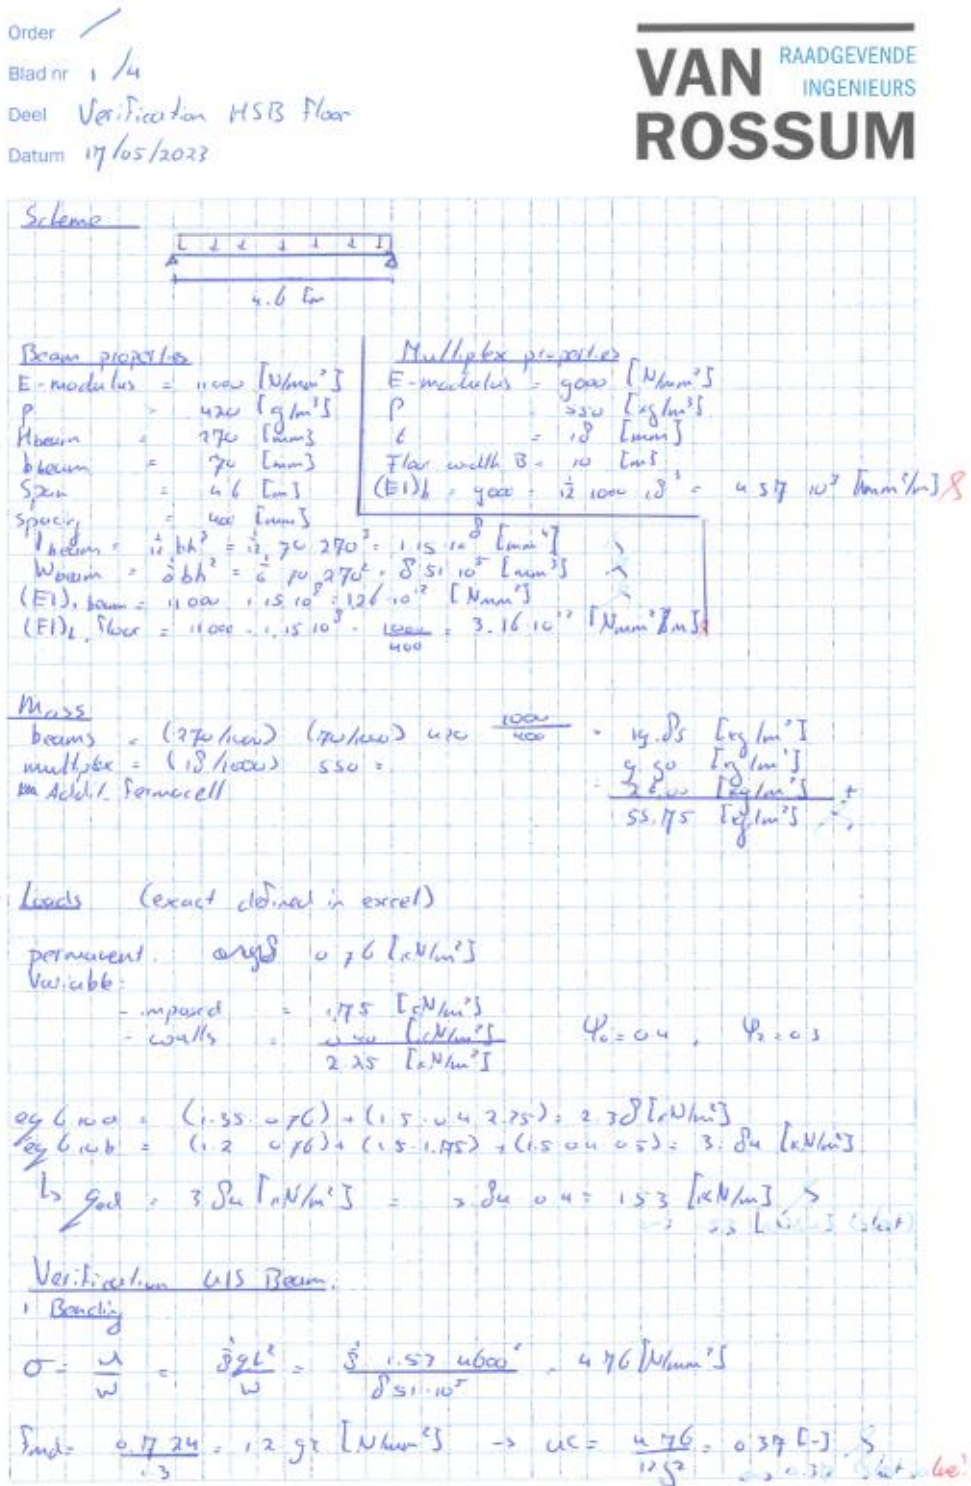 Order /
Blad nr 1/4
Deel Verification HSB Floor
Datum 17/05/2023
VAN RAADGEVENDE
INGENIEURS
ROSSUM
Scheme
4.6 [m
Beam properties
E-modulus = 11000 [N/mm²]
ρ = 420 [kg/m³]
Hbeam = 270 [mm]
bbeam = 70 [mm]
Span = 4.6 [m]
spacing = 400 [mm]
Ibeam = 1/12 bh³ = 1/12 . 70 270³ = 1.15 10⁸ [mm⁴]
Wbeam = 1/6 bh² = 1/6 70 270² = 8.51 10⁵ [mm³]
(EI)L beam = 11000 . 1.15 10⁸ = 1.26 10¹² [Nmm²]
(EI)L floor = 11000 . 1.15 10⁸ . 1000/400 = 3.16 10¹² [Nmm²/m]
Multiplex properties
E-modulus = 9000 [N/mm²]
ρ = 550 [kg/m³]
t = 18 [mm]
Floor width B = 10 [m]
(EI)b = 9000 . 1/12 1000 18³ = 4.37 10⁹ [Nmm²/m]
Mass
beams = (270/1000) (70/1000) 420 1000/400 = 19.85 [kg/m²]
multiplex = (18/1000) 550 = 9.90 [kg/m²]
Addit. Fermacell 26.00 [kg/m²] +
55.75 [kg/m²]
Loads (exact defined in excel)
permanent: 0.76 [kN/m²]
Variable:
- imposed = 1.75 [kN/m²]
- walls = 0.50 [kN/m²]
2.25 [kN/m²]
Ψ₀ = 0.4 , Ψ₂ = 0.3
eq 6.10a = (1.35 . 0.76) + (1.5 . 0.4 2.25) = 2.38 [kN/m²]
eq 6.10b = (1.2 0.76) + (1.5 . 1.75) + (1.5 0.4 0.5) = 3.84 [kN/m²]
↳ qed = 3.84 [kN/m²] = 3.84 0.4 = 1.53 [kN/m]
Verification ULS Beam:
1 Bending
σ = M/W = 1/8 qL²/W = 1/8 1.53 4600²/8.51.10⁵ = 4.76 [N/mm²]
fmd = 0.7 24/1.3 = 12.92 [N/mm²] → UC = 4.76/12.92 = 0.37 [-]